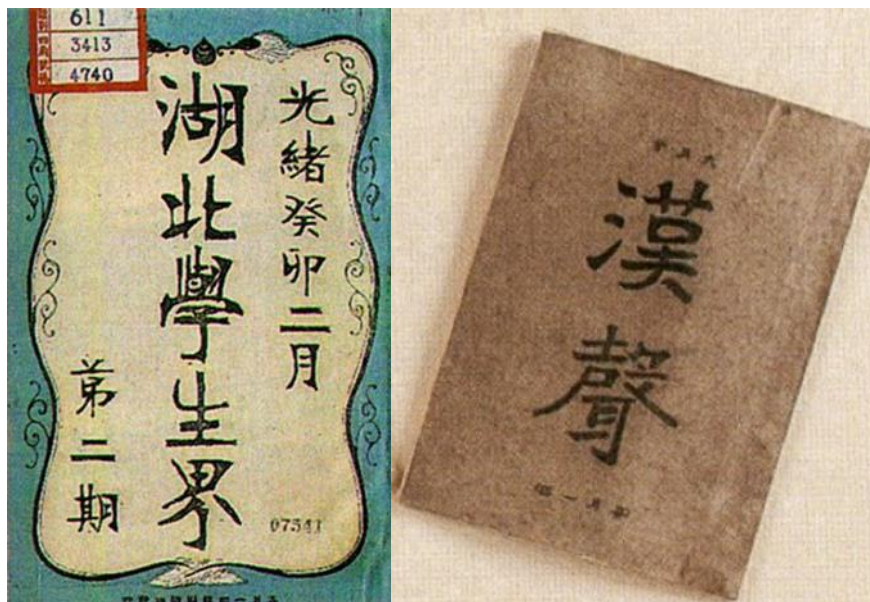 611
3413
4740
光緒癸卯二月
湖北學生界
苐二期
07541
漢聲